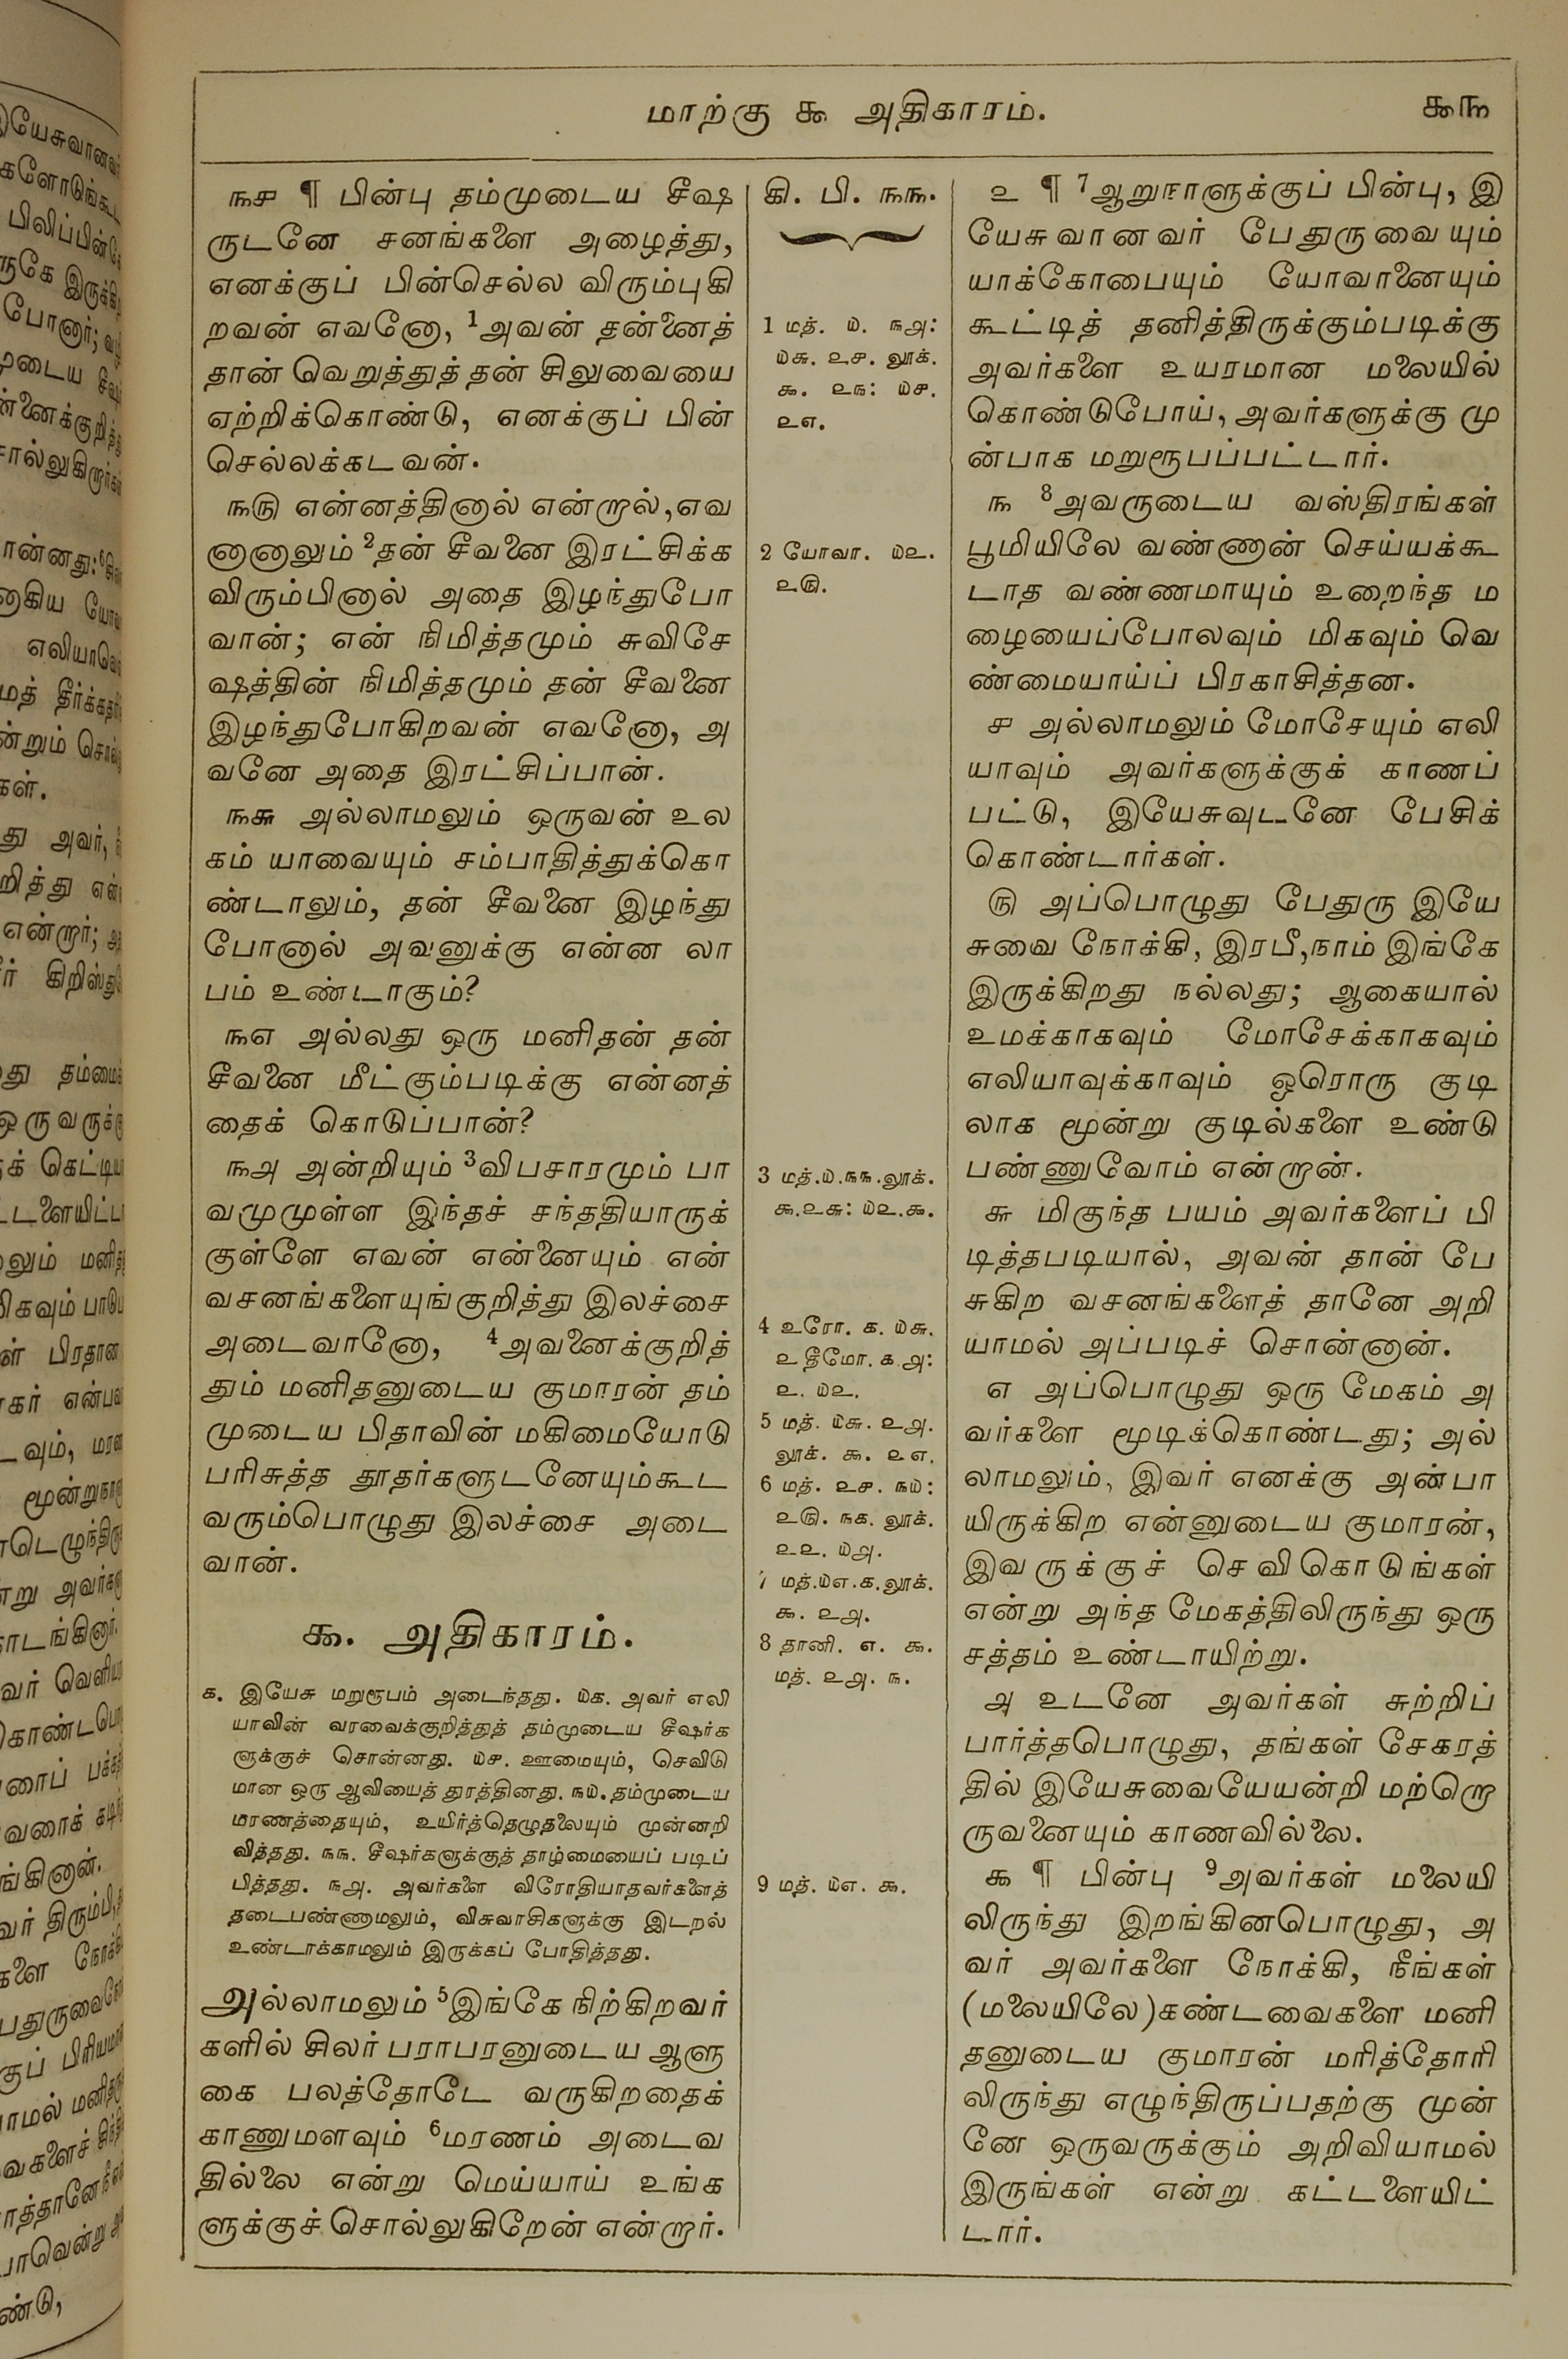 மாற்கு ௯ அதிகாரம்.
௯௩
௩௪ ¶ பின்பு தம்முடைய சீஷ
ருடனே சனங்களை அழைத்து,
எனக்குப் பின்செல்ல விரும்புகி
றவன் எவனோ, 1அவன் தன்னைத்
தான் வெறுத்துத் தன் சிலுவையை
ஏற்றிக்கொண்டு, எனக்குப் பின்
செல்லக்கடவன்.
௩௫ என்னத்தினால் என்றால், எவ
னானாலும் 2தன் சீவனை இரட்சிக்க
விரும்பினால் அதை இழந்துபோ
வான்; என் நிமித்தமும் சுவிசே
ஷத்தின் நிமித்தமும் தன் சீவனை
இழந்துபோகிறவன் எவனோ, அ
வனே அதை இரட்சிப்பான்.
௩௬ அல்லாமலும் ஒருவன் உல
கம் யாவையும் சம்பாதித்துக்கொ
ண்டாலும், தன் சீவனை இழந்து
போனால் அவனுக்கு என்ன லா
பம் உண்டாகும்?
௩௭ அல்லது ஒரு மனிதன் தன்
சீவனை மீட்கும்படிக்கு என்னத்
தைக் கொடுப்பான்?
௩௮ அன்றியும் 3விபசாரமும் பா
வமுமுள்ள இந்தச் சந்ததியாருக்
குள்ளே எவன் என்னையும் என்
வசனங்களையுங்குறித்து இலச்சை
அடைவானோ, 4அவனைக்குறித்
தும் மனிதனுடைய குமாரன் தம்
முடைய பிதாவின் மகிமையோடு
பரிசுத்த தூதர்களுடனேயும்கூட
வரும்பொழுது இலச்சை அடை
வான்.
௯. அதிகாரம்.
௧. இயேசு மறுரூபம் அடைந்தது. ௰௧. அவர் எலி
யாவின் வரவைக்குறித்துத் தம்முடைய சீஷர்க
ளுக்குச் சொன்னது. ௰௪. ஊமையும், செவிடு
மான ஒரு ஆவியைத் துரத்தினது. ௩௰. தம்முடைய
மரணத்தையும், உயிர்த்தெழுதலையும் முன்னறி
வித்தது. ௩௩. சீஷர்களுக்குத் தாழ்மையைப் படிப்
பித்தது. ௩௮. அவர்களை விரோதியாதவர்களைத்
தடைபண்ணாமலும், விசுவாசிகளுக்கு இடறல்
உண்டாக்காமலும் இருக்கப் போதித்தது.
அல்லாமலும் 5இங்கே நிற்கிறவர்
களில் சிலர் பராபரனுடைய ஆளு
கை பலத்தோடே வருகிறதைக்
காணுமளவும் 6மரணம் அடைவ
தில்லை என்று மெய்யாய் உங்க
ளுக்குச் சொல்லுகிறேன் என்றார்.
கி. பி. ௩௩.
1 மத். ௰. ௩௮:
௰௬. ௨௪. லூக்.
௯. ௨௩: ௰௪.
௨௭.
2 யோவா. ௰௨.
௨௫.
3 மத்.௰.௩௩.லூக்.
௯.௨௬: ௰௨.௯.
4 உரோ. ௧. ௰௬.
௨ தீமோ. ௧.௮:
௨. ௰௨.
5 மத். ௰௬. ௨௮.
லூக். ௯. ௨௭.
6 மத். ௨௪. ௩௰:
௨௫. ௩௧. லூக்.
௨௨. ௰௮.
7 மத்.௰௭.௧.லூக்.
௯. ௨௮.
8 தானி. ௭. ௯.
மத். ௨௮. ௩.
9 மத். ௰௭. ௯.
௨ ¶ 7ஆறுநாளுக்குப் பின்பு, இ
யேசுவானவர் பேதுருவையும்
யாக்கோபையும் யோவானையும்
கூட்டித் தனித்திருக்கும்படிக்கு
அவர்களை உயரமான மலையில்
கொண்டுபோய், அவர்களுக்கு மு
ன்பாக மறுரூபப்பட்டார்.
௩ 8அவருடைய வஸ்திரங்கள்
பூமியிலே வண்ணான் செய்யக்கூ
டாத வண்ணமாயும் உறைந்த ம
ழையைப்போலவும் மிகவும் வெ
ண்மையாய்ப் பிரகாசித்தன.
௪ அல்லாமலும் மோசேயும் எலி
யாவும் அவர்களுக்குக் காணப்
பட்டு, இயேசுவுடனே பேசிக்
கொண்டார்கள்.
௫ அப்பொழுது பேதுரு இயே
சுவை நோக்கி, இரபீ, நாம் இங்கே
இருக்கிறது நல்லது; ஆகையால்
உமக்காகவும் மோசேக்காகவும்
எலியாவுக்காவும் ஓரொரு குடி
லாக மூன்று குடில்களை உண்டு
பண்ணுவோம் என்றான்.
௬ மிகுந்த பயம் அவர்களைப் பி
டித்தபடியால், அவன் தான் பே
சுகிற வசனங்களைத் தானே அறி
யாமல் அப்படிச் சொன்னான்.
௭ அப்பொழுது ஒரு மேகம் அ
வர்களை மூடிக்கொண்டது; அல்
லாமலும், இவர் எனக்கு அன்பா
யிருக்கிற என்னுடைய குமாரன்,
இவருக்குச் செவிகொடுங்கள்
என்று அந்த மேகத்திலிருந்து ஒரு
சத்தம் உண்டாயிற்று.
௮ உடனே அவர்கள் சுற்றிப்
பார்த்தபொழுது, தங்கள் சேகரத்
தில் இயேசுவையேயன்றி மற்றொ
ருவனையும் காணவில்லை.
௯ ¶ பின்பு 9அவர்கள் மலையி
லிருந்து இறங்கினபொழுது, அ
வர் அவர்களை நோக்கி, நீங்கள்
(மலையிலே)கண்டவைகளை மனி
தனுடைய குமாரன் மரித்தோரி
லிருந்து எழுந்திருப்பதற்கு முன்
னே ஒருவருக்கும் அறிவியாமல்
இருங்கள் என்று கட்டளையிட்
டார்.